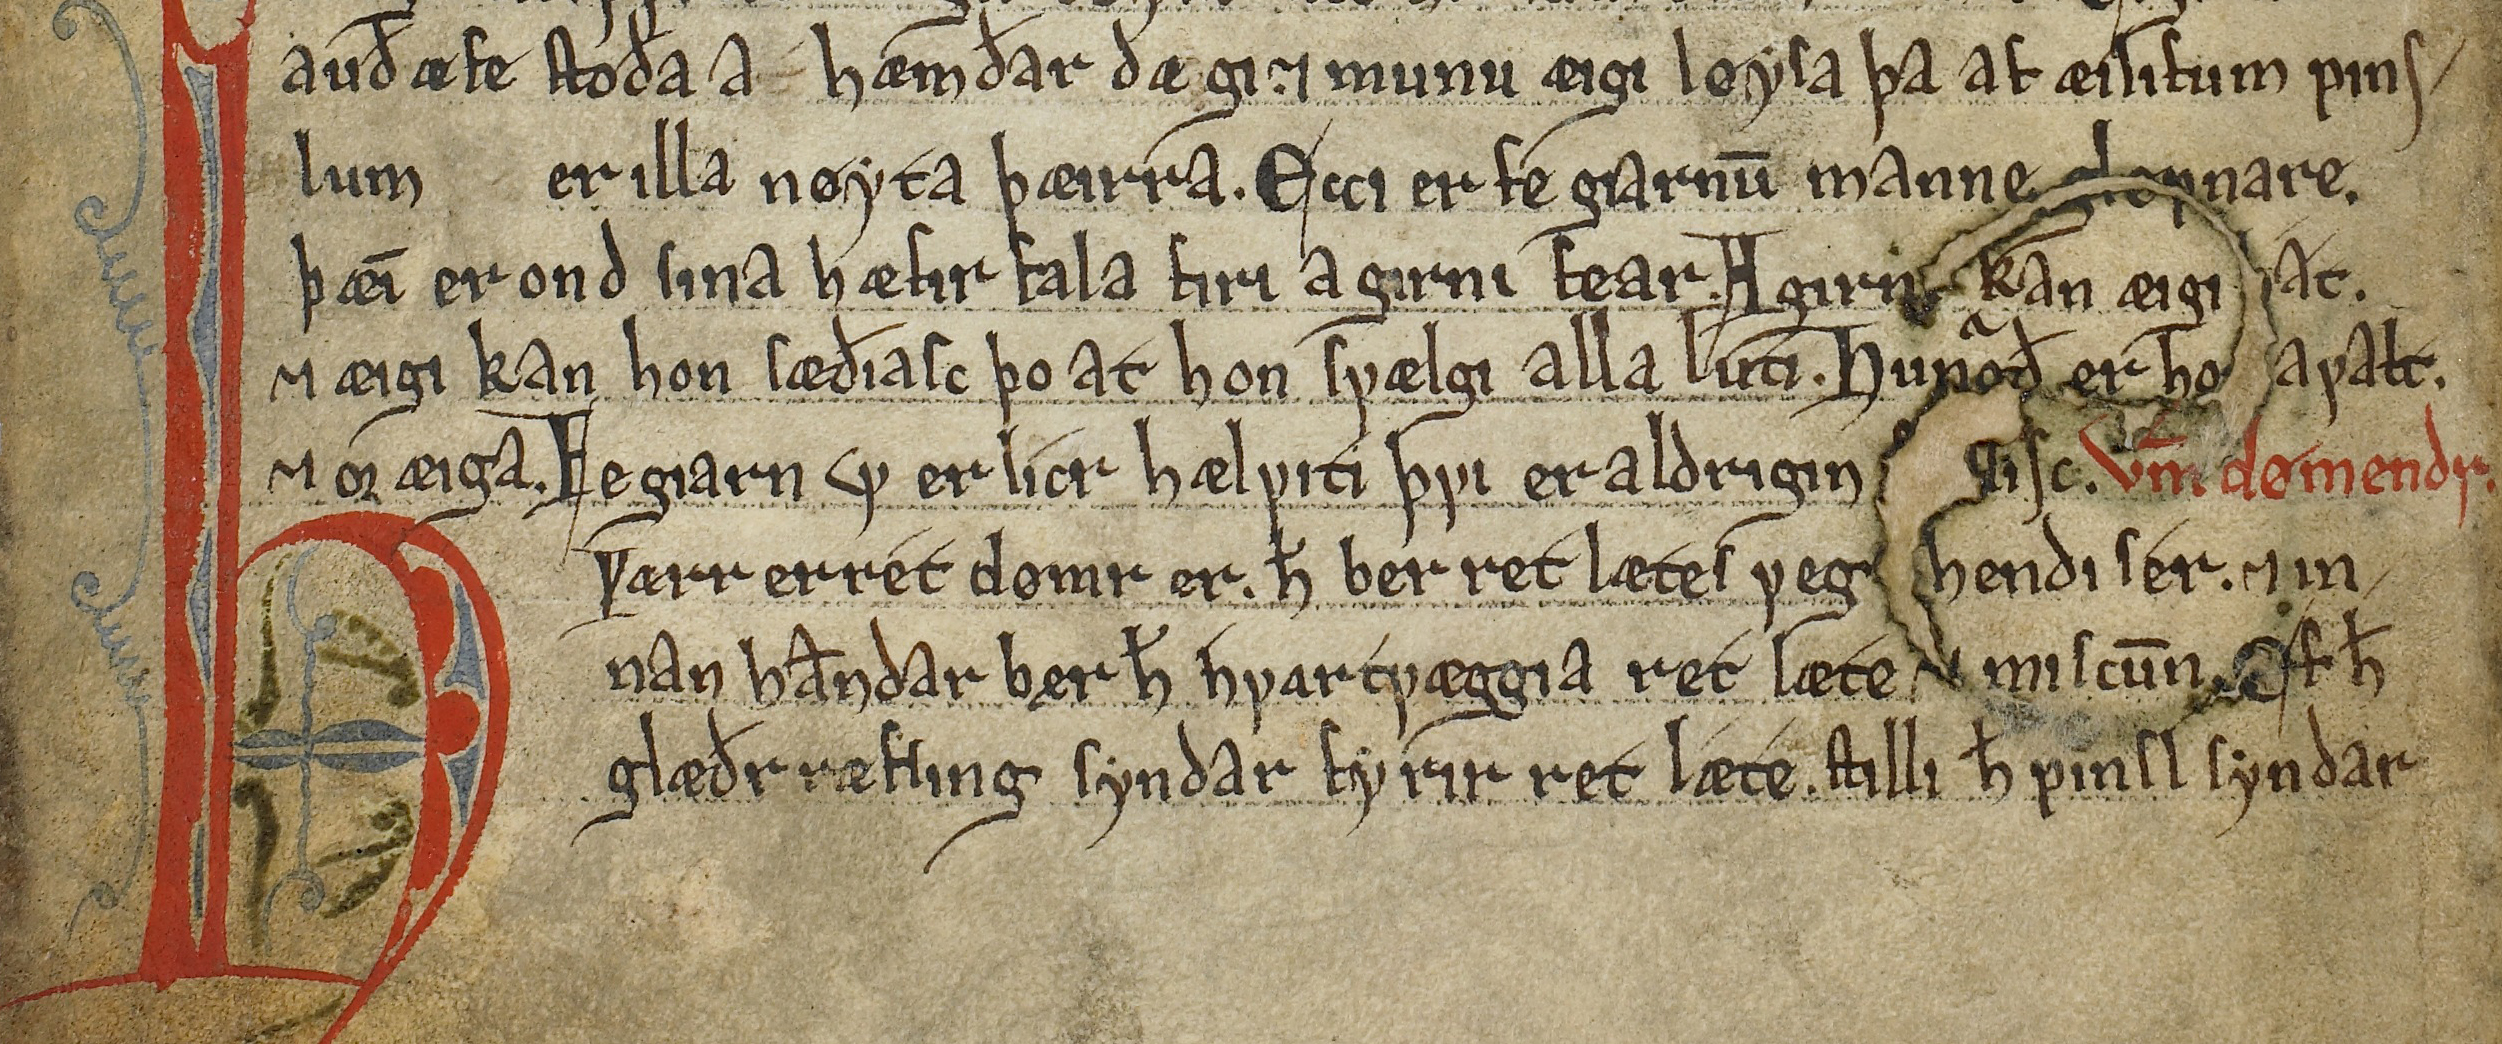 auðæfe stoða a hæmðar dægi. ⁊ munu æigi løysa þa af æilifum pinſ-
lum er illa nøyta þæirra. Ecci er fe giarnū manne glopnare.
þæī er ond sina hæfir fala firi agirni fear. Agirni kan æigi at.
⁊ æigi kan hon sæðiasc þo at hon svælgi alla luti. Hungroð er ho avalt.
⁊ oꝝ æiga. Fegiarn ꝩ er licr hælviti þvi er aldrigin gisc. Vm domendr.
Værr er ret domr er. ħ ber ret lætes veg hendi ser. ⁊ in-
nan handar ber ħ hvartvæggia ret læte ⁊ miscūn. Ef ħ
glæðr ræfsing syndar fyrir ret læte. stilli ħ pinsl syndar